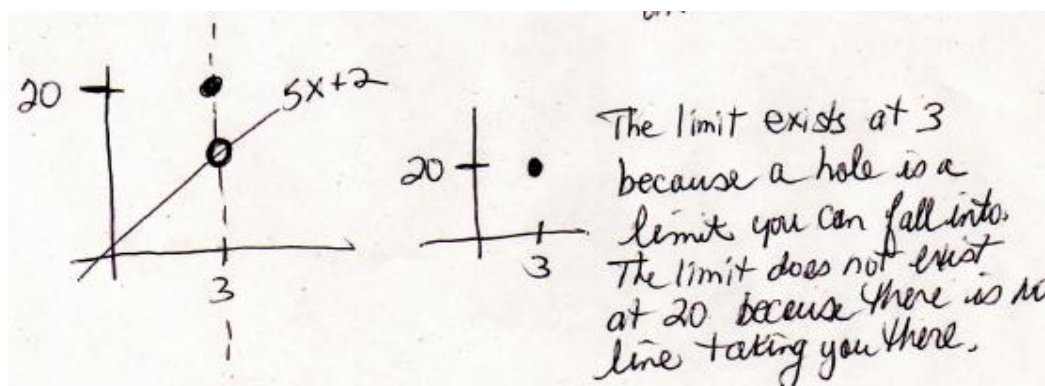 20
5x+2
3
20
3
The limit exists at 3
because a hole is a
limit you can fall into.
The limit does not exist
at 20 because there is no
line taking you there.